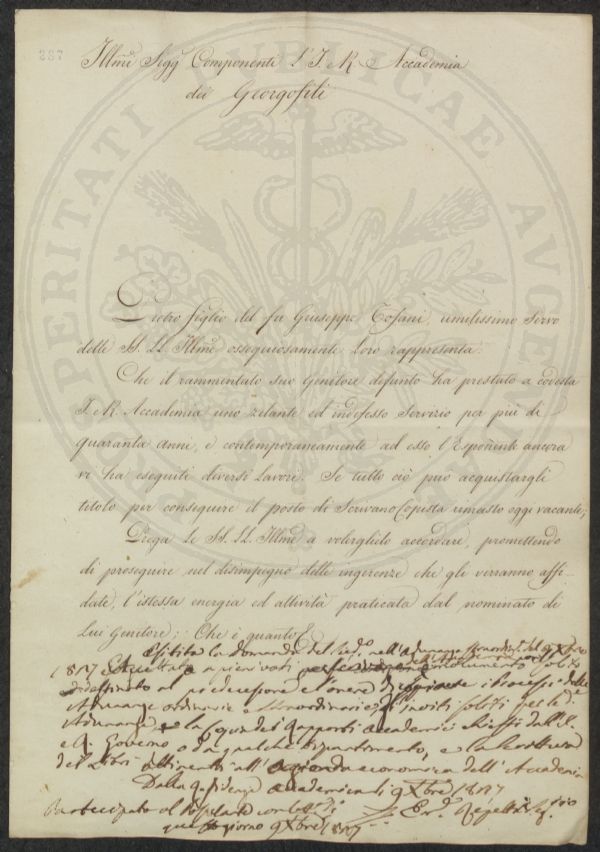 387
Illmi Sigg Componenti L'I. e R. Accademia
dei Georgofili
Pietro figlio del fu Giuseppe Tofani, umilissimo Servo
delle SS. LL. Illme ossequiosamente Loro rappresenta
Che il rammentato suo Genitore defunto ha prestato a codesta
I. e R. Accademia uno zelante ed indefesso Servizio per più di
quaranta anni, e contemporaneamente ad esso l'Esponente ancora
vi ha eseguiti diversi Lavori. Se tutto ciò può acquistargli
titolo per conseguire il posto di Scrivano Copista rimasto oggi vacante;
Prega le SS. LL. Illme a volerglielo accordare, promettendo
di proseguire nel disimpegno delle ingerenze che gli verranno affi-
date, l'istessa energia ed attività praticata dal nominato di
Lui Genitore; Che è quanto
Esibita la domanda del nell'Adunanza
a pieni voti
al predecessore e l'onere di i Processi delle
Adunanze ordinarie e straordinarie, gli inviti soliti per le
Adunanze e la dei Rapporti accademici
e R. Governo o da qualche dipartimento, e la
dei Libri attinenti all'azienda economica dell'Accademia
Dalla Residenza Accademica li
Partecipato al
giorno